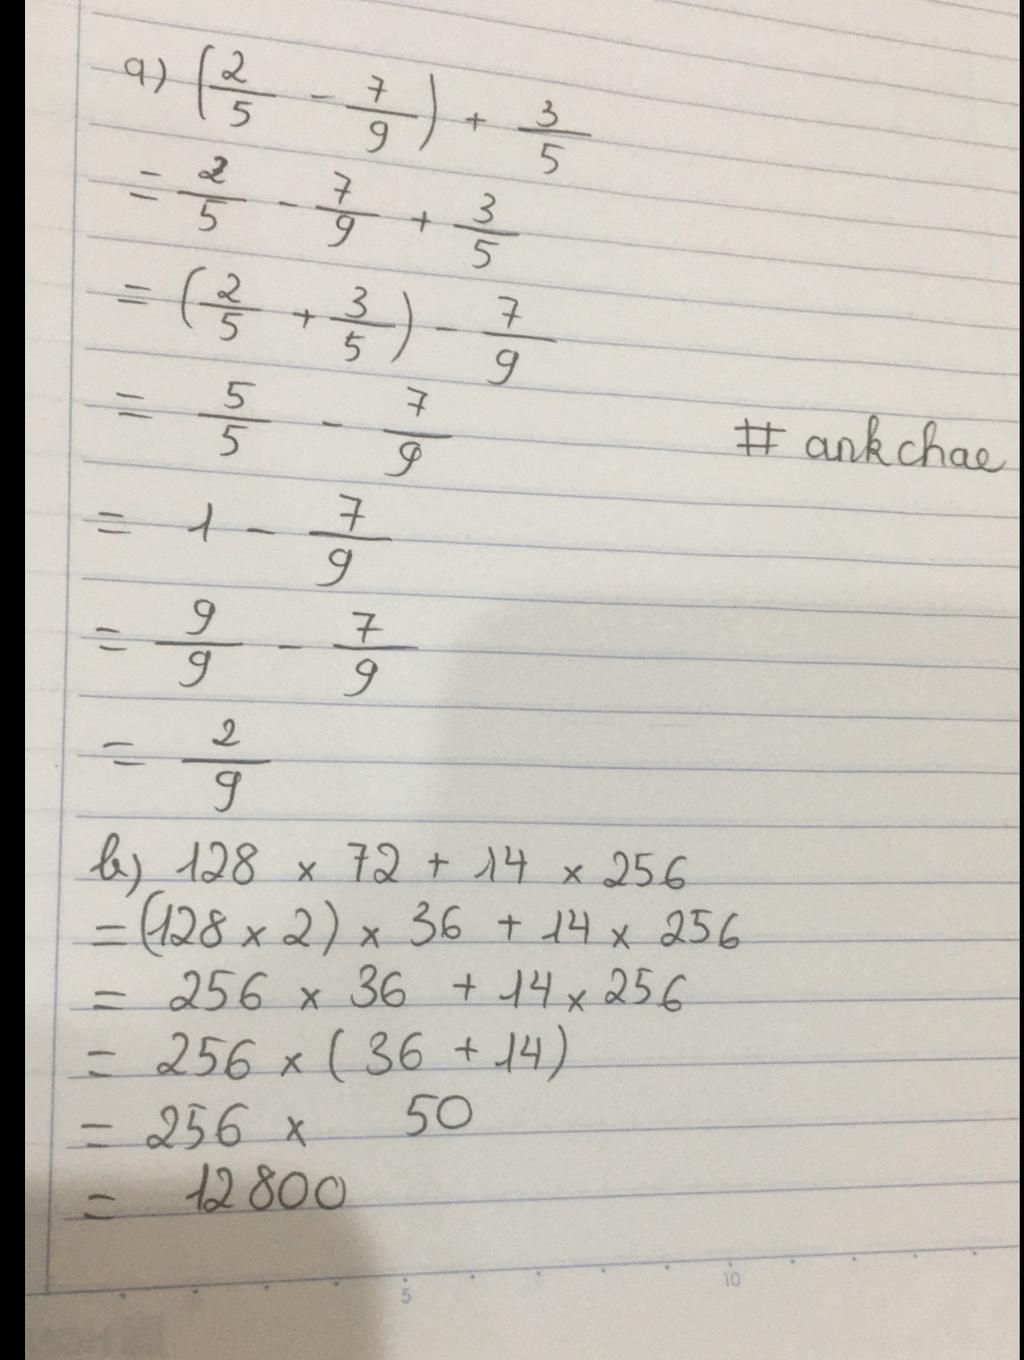 a) (2/5 - 7/9) + 3/5
= 2/5 - 7/9 + 3/5
= (2/5 + 3/5) - 7/9
= 5/5 - 7/9
# ankchae
= 1 - 7/9
= 9/9 - 7/9
= 2/9
b) 128 × 72 + 14 × 256
= (128 × 2) × 36 + 14 × 256
= 256 × 36 + 14 × 256
= 256 × (36 + 14)
= 256 × 50
= 12800
5 10